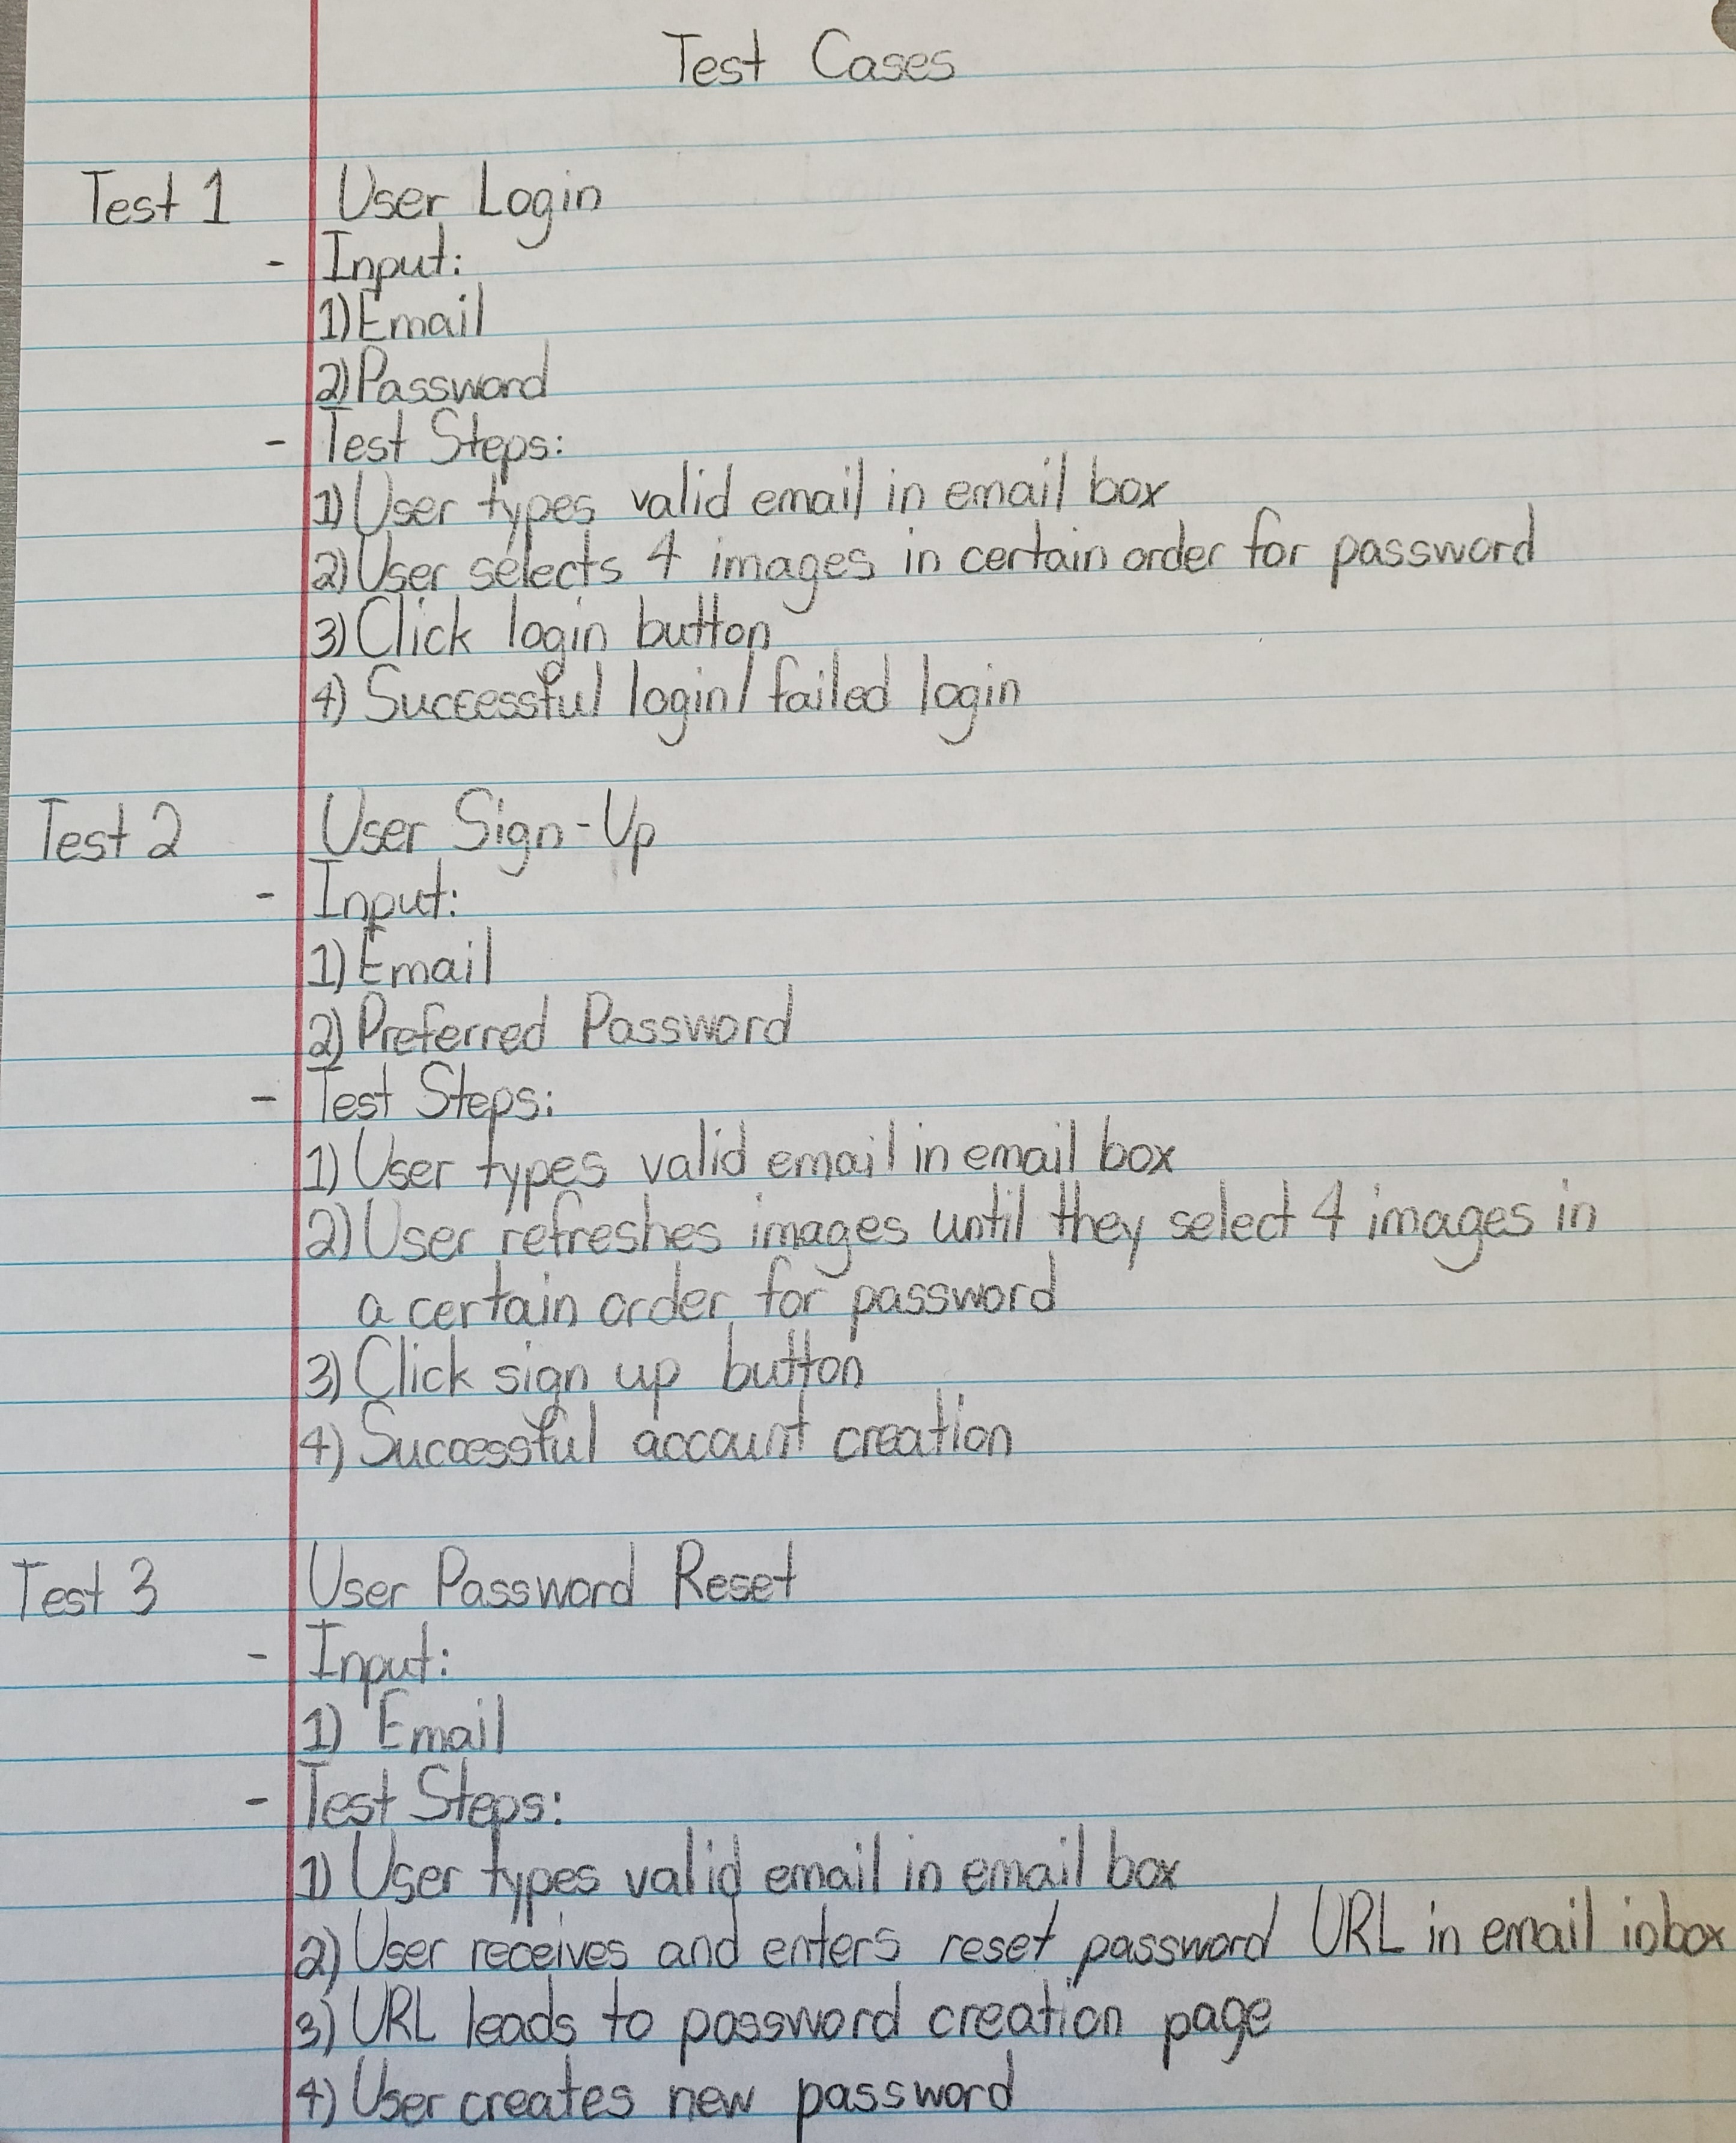 Test Cases
Test 1 User Login
- Input:
1) Email
2) Password
- Test Steps:
1) User types valid email in email box
2) User selects 4 images in certain order for password
3) Click login button
4) Successful login/failed login
Test 2 User Sign-Up
- Input:
1) Email
2) Preferred Password
- Test Steps:
1) User types valid email in email box
2) User refreshes images until they select 4 images in
a certain order for password
3) Click sign up button
4) Successful account creation
Test 3 User Password Reset
- Input:
1) Email
- Test Steps:
1) User types valid email in email box
2) User receives and enters reset password URL in email inbox
3) URL leads to password creation page
4) User creates new password